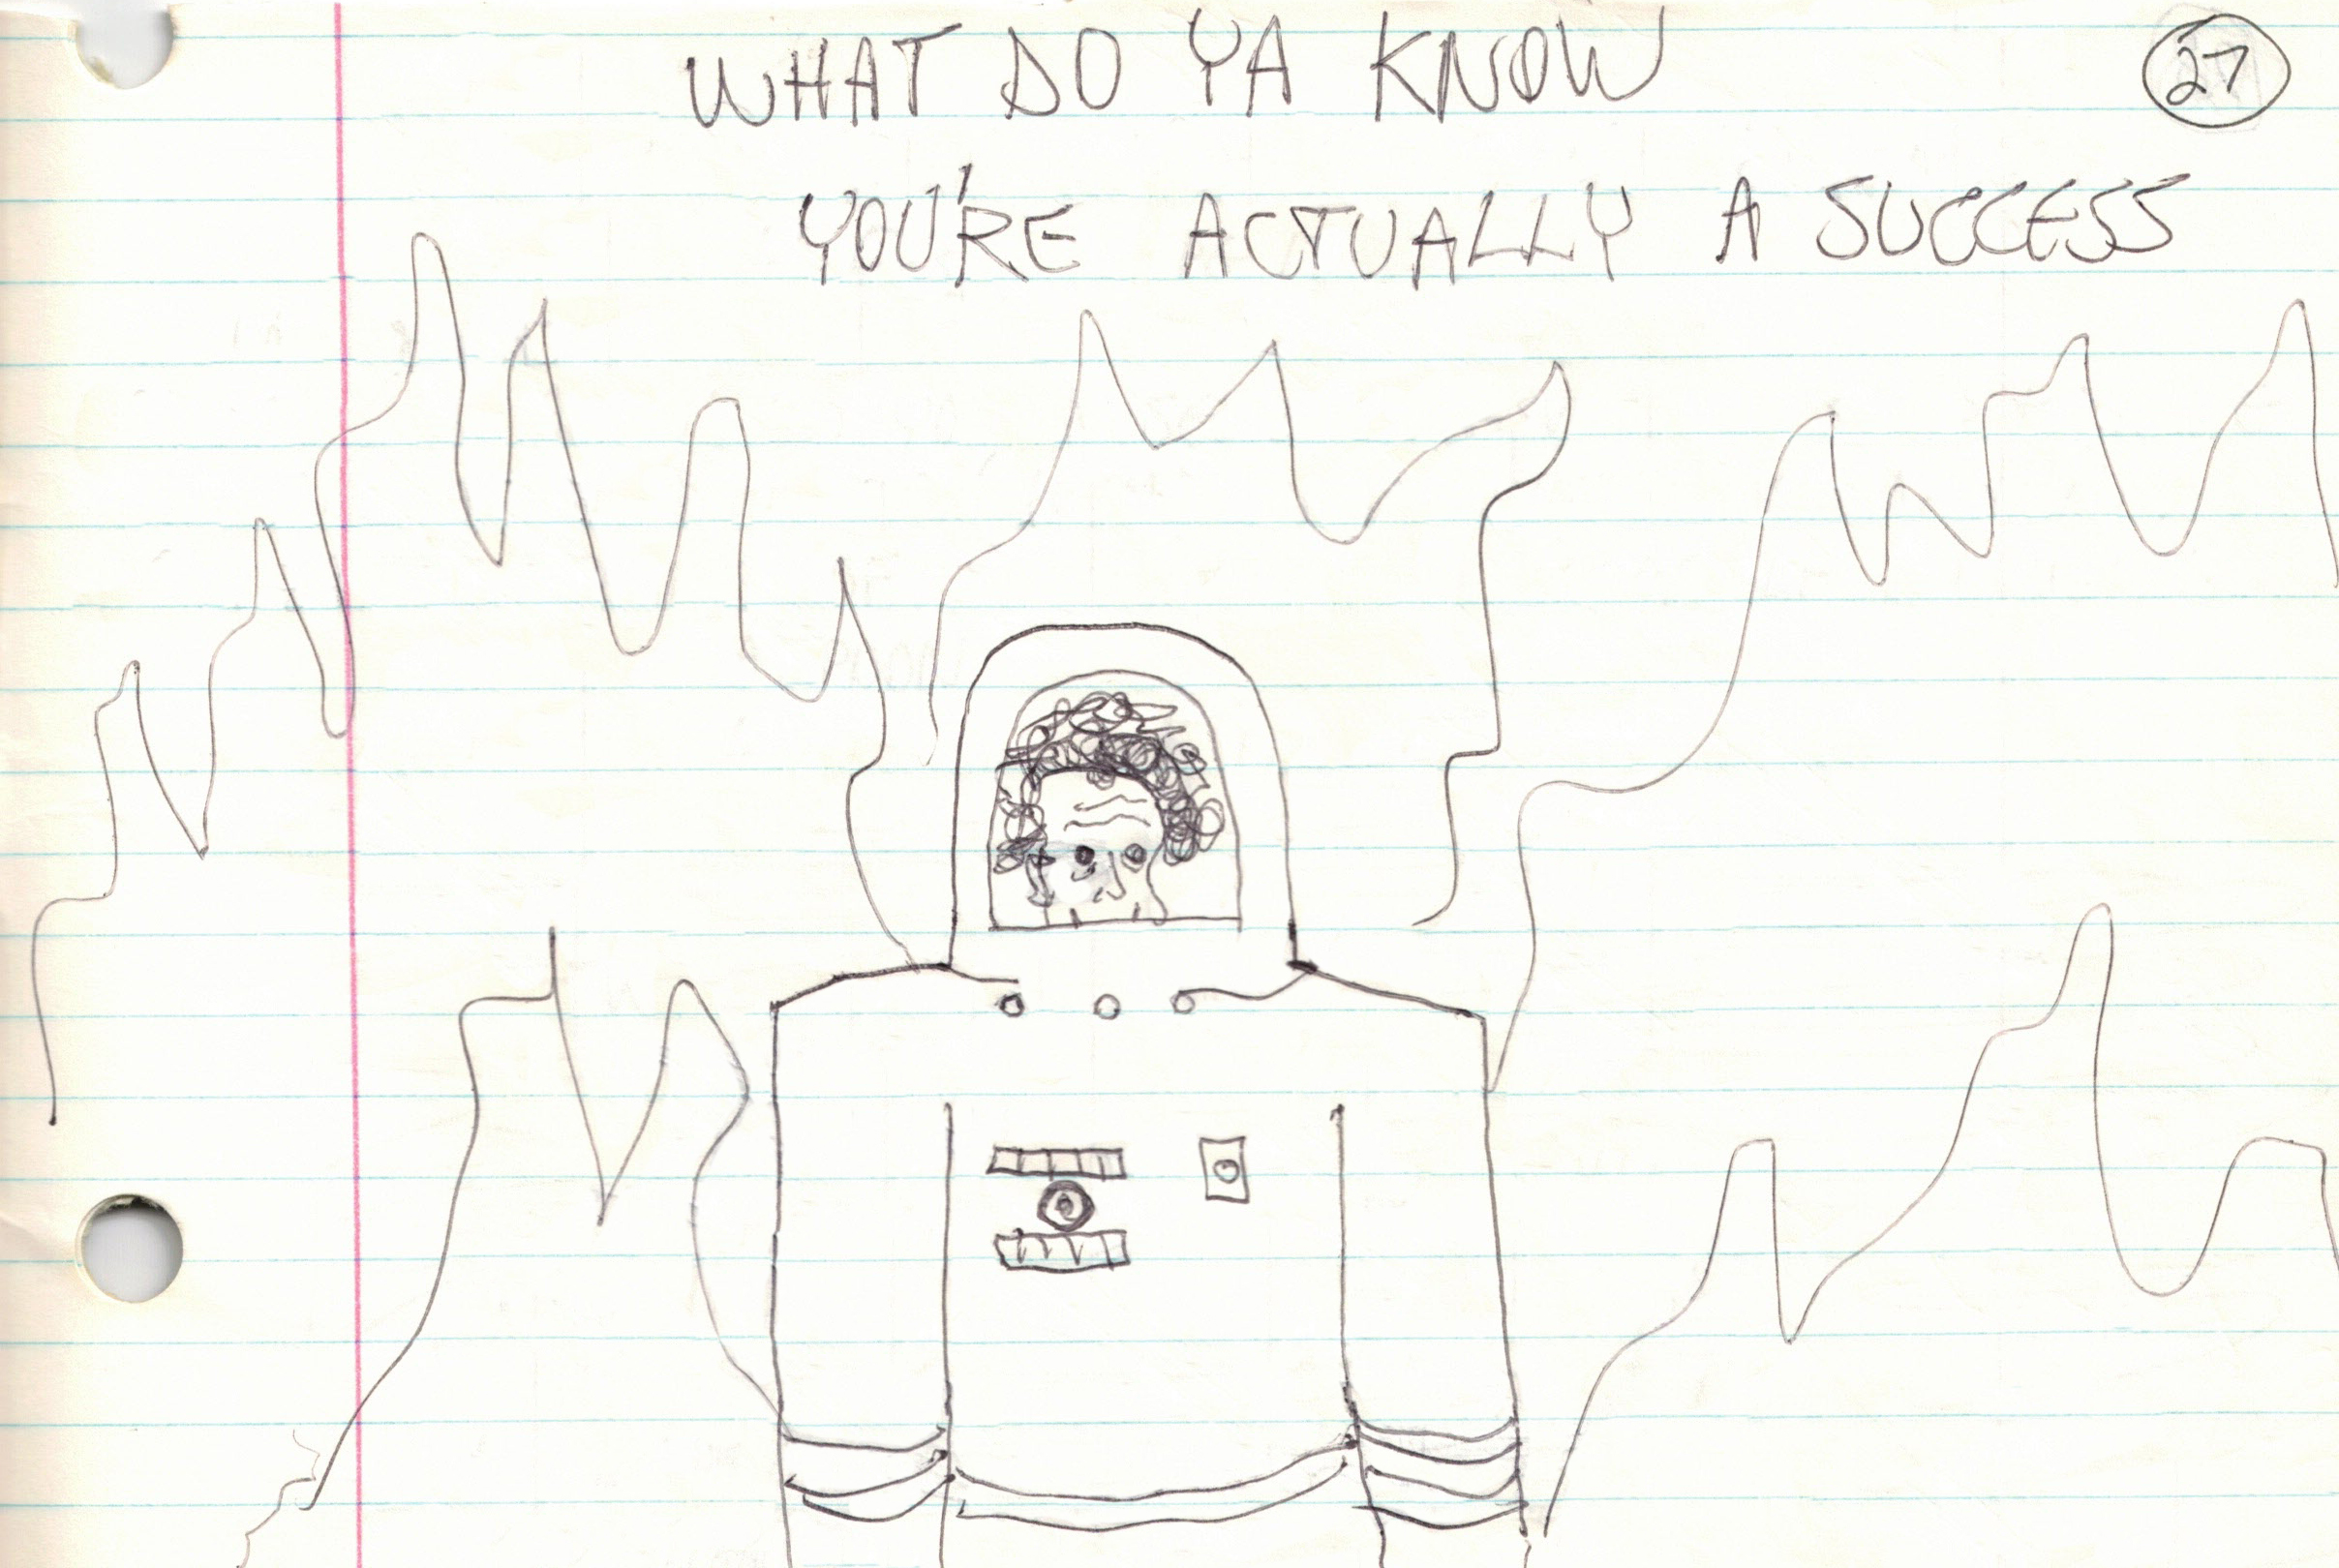 WHAT DO YA KNOW
27
YOU'RE ACTUALLY A SUCCESS